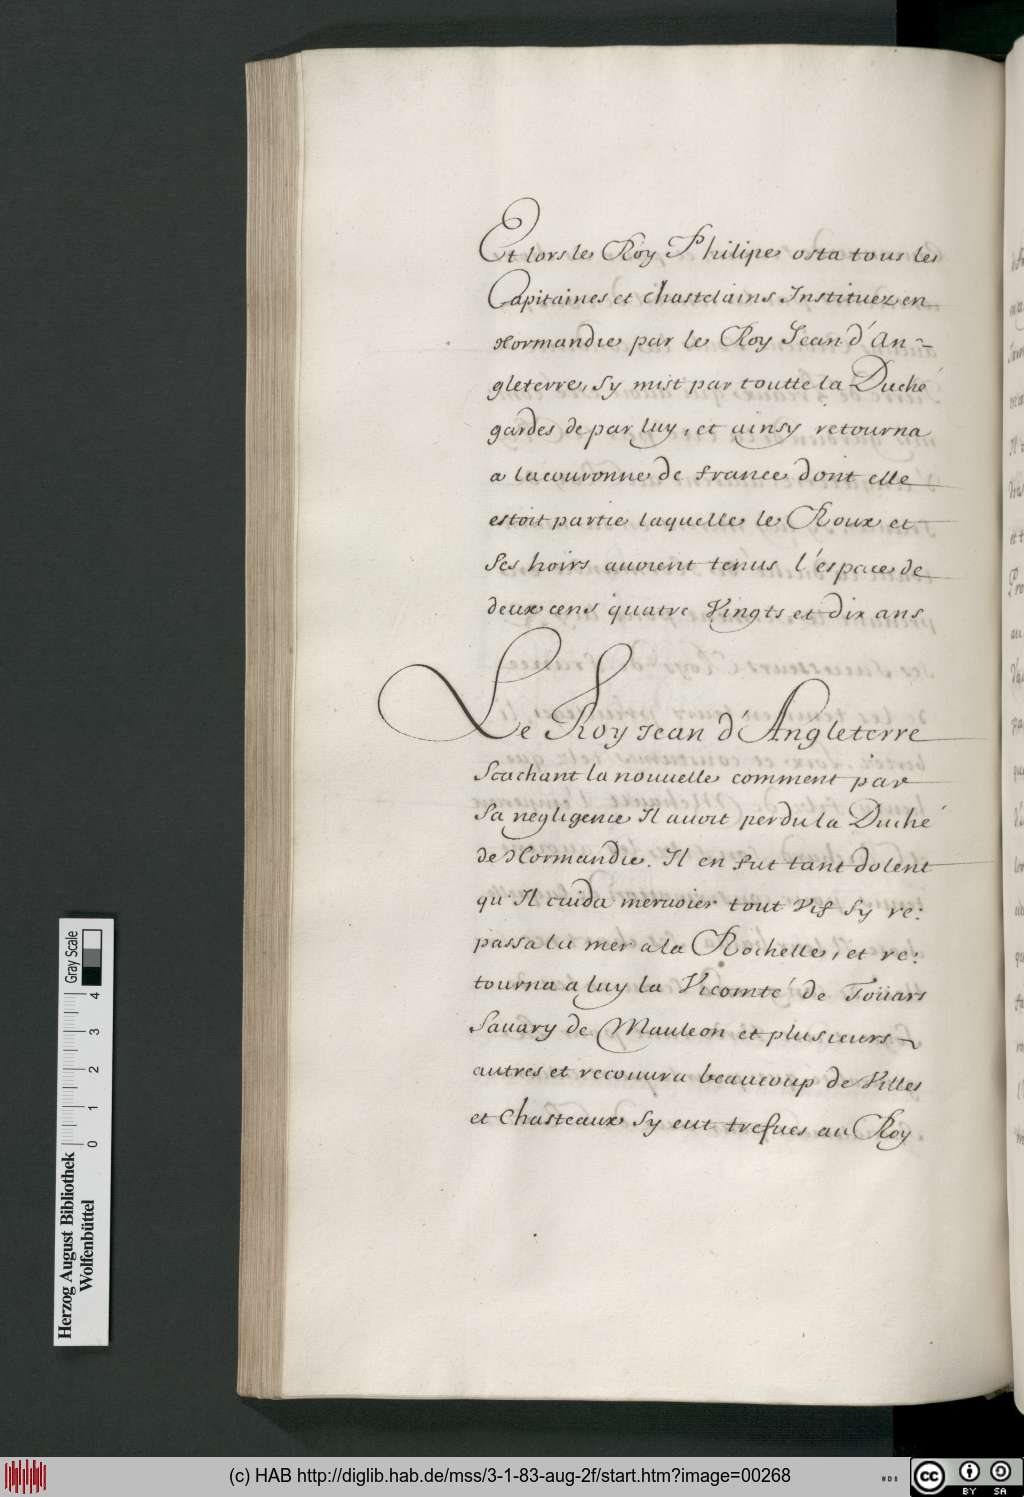 Et lors le Roy Philipe osta tous les
Capitaines et chastelains Instituez en
Normandie par le Roy Jean d'An-
gleterre, Sy mist par toutte la Duché
gardes de par luy, et ainsy retourna
a la couronne de france dont elle
estoit partie laquelle le Roux et
Ses hoirs auoient tenus l'espace de
deux cens quatre Vingts et dix ans
Le Roy Jean d'Angleterre
Scachant la nouuelle comment par
Sa negligence Il auoit perdu la Duché
de Normandie. Il en fut tant dolent
qu'Il cuida meruoier tout Vif Sy re:
passa la mer a la Rochelle, et re:
tourna a luy la Vicomté de Toüars
Sauary de Mauleon et plusieurs
autres et recouura beaucoup de Villes
et Chasteaux Sy eut trefues au Roy
Herzog August Bibliothek
Wolfenbüttel
Gray Scale
0 1 2 3 4
(c) HAB http://diglib.hab.de/mss/3-1-83-aug-2f/start.htm?image=00268
WDB
cc BY SA